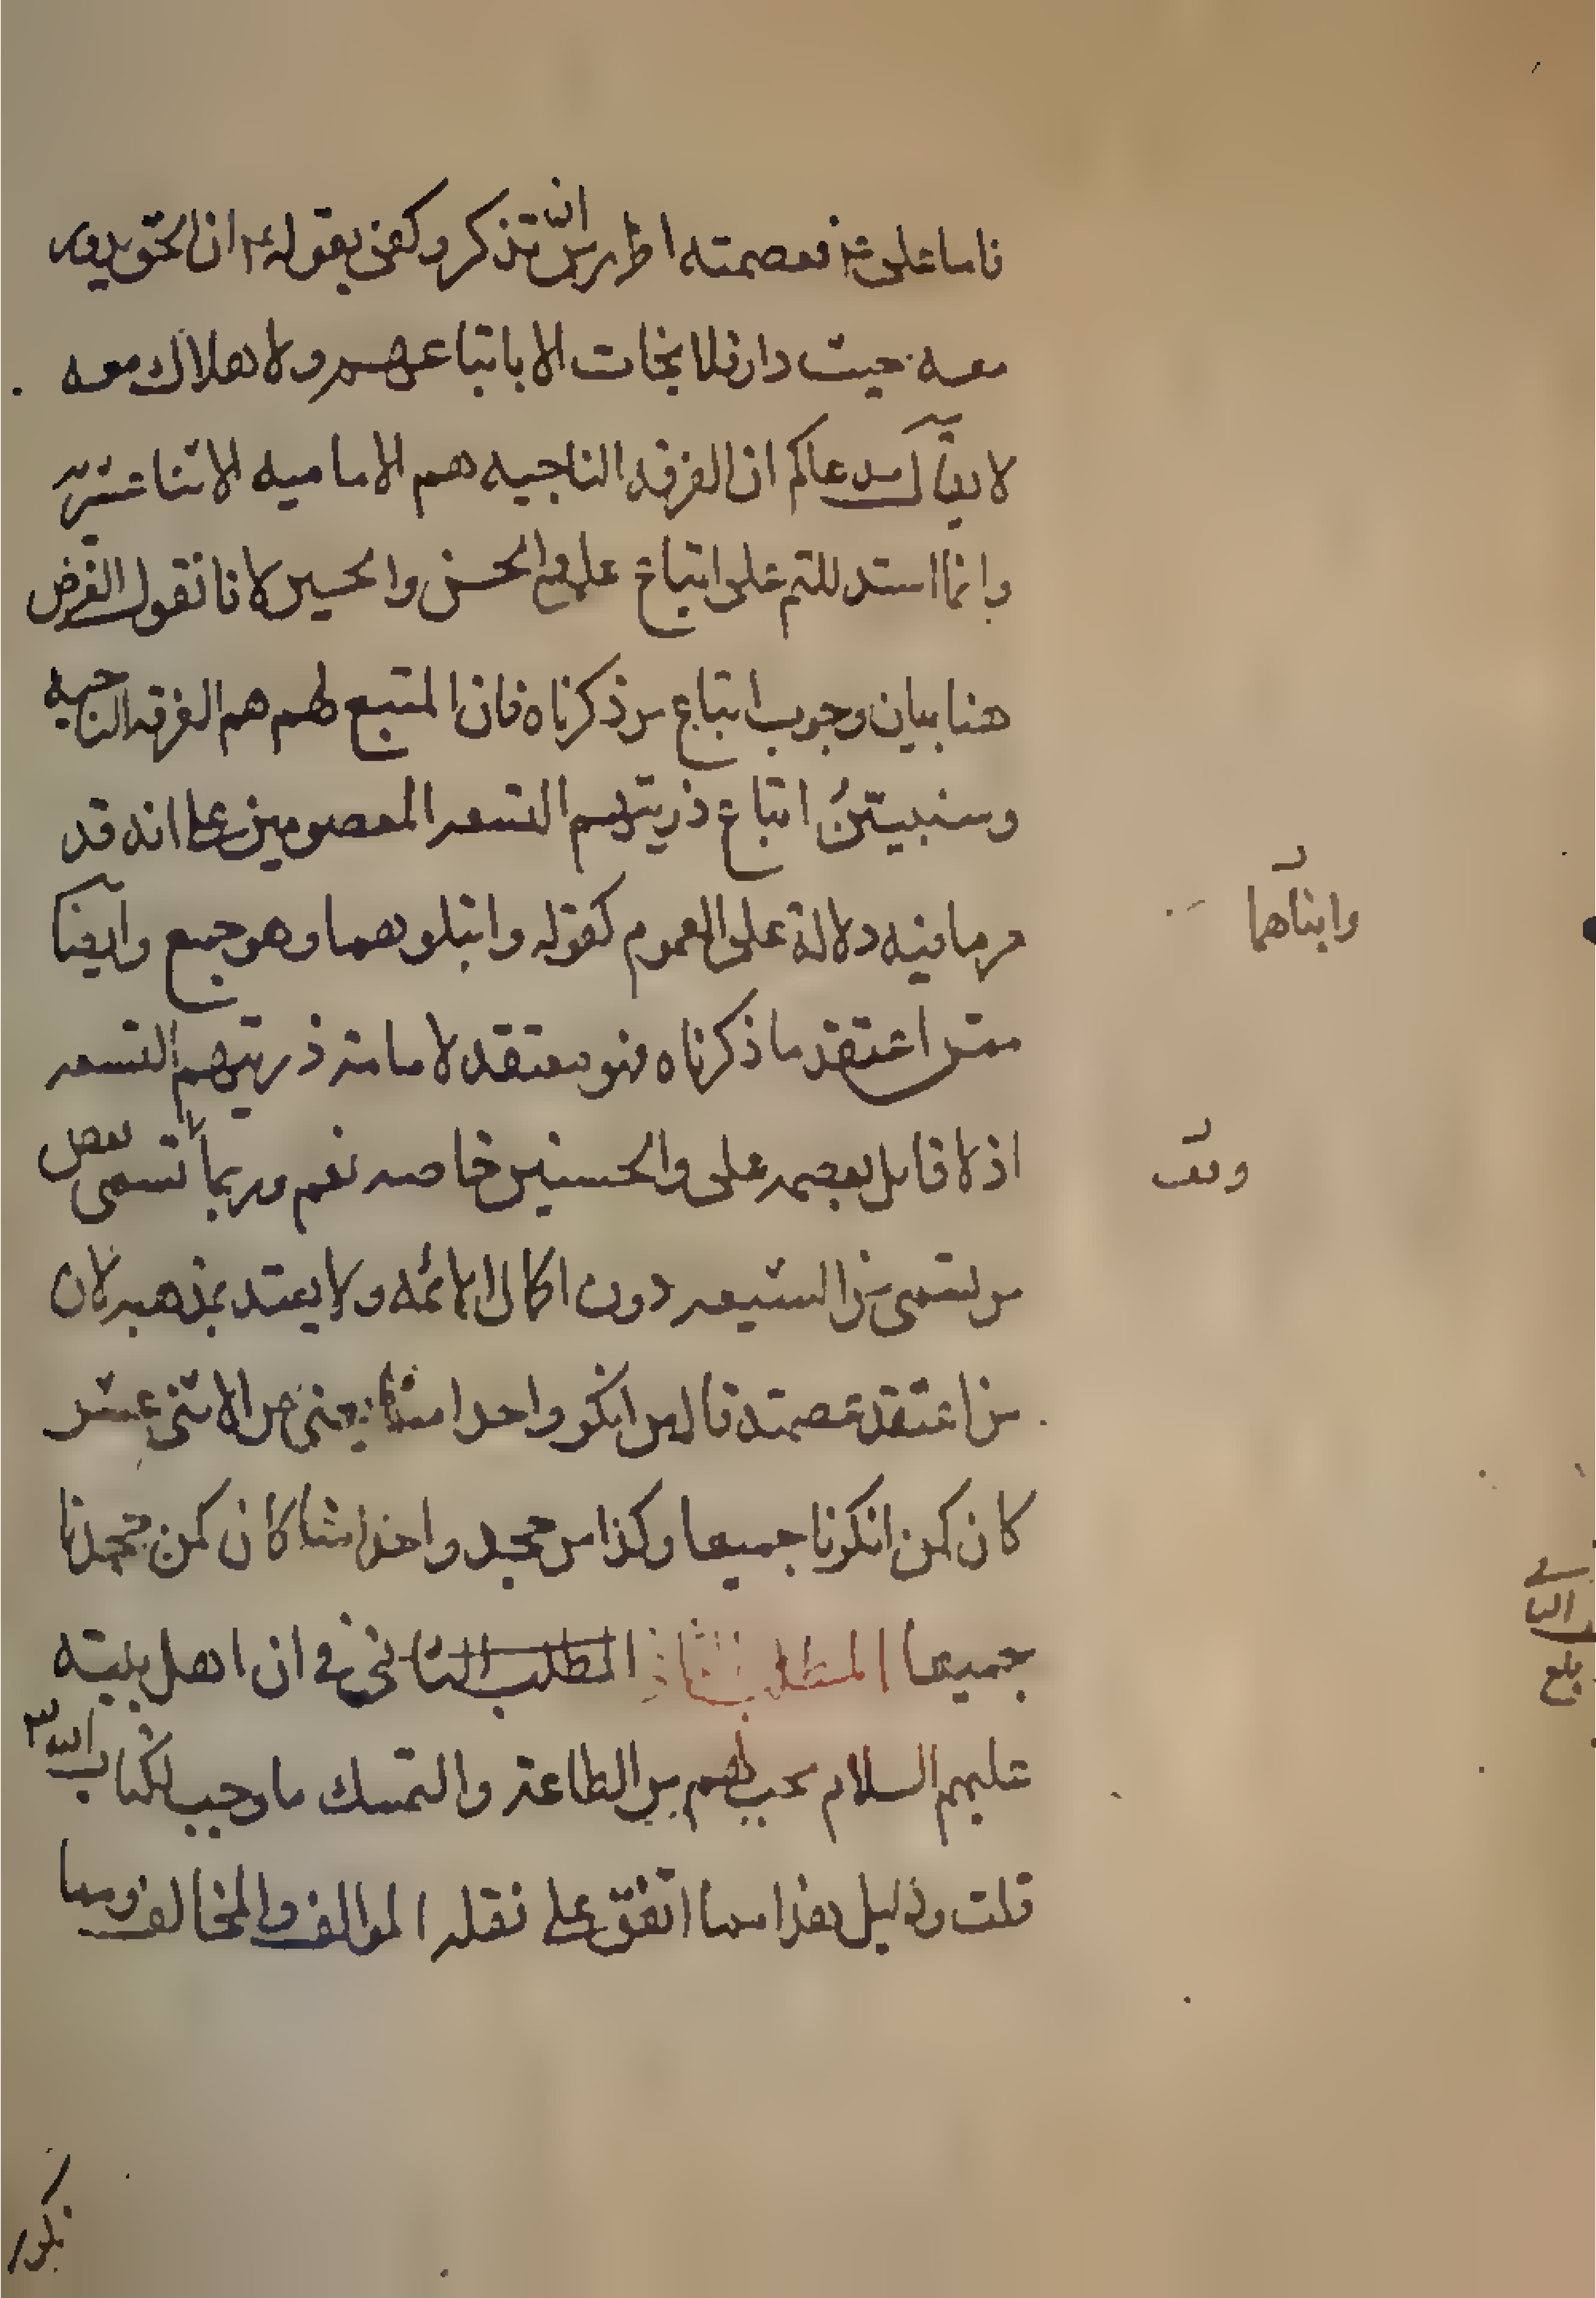 فاما على ع فعصمته اظهر من ان تذكر وكفى بقوله ع ان الحق يدور
معه حيث دار فلا نجات الا باتباعهم ولا هلاك معه
لا يقال مدعاكم ان الفرقه الناجيه هم الاماميه الاثنا عشريه
وانما استدللتم على اتباع على والحسن والحسين لانا نقول الغرض
هنا بيان وجوب اتباع من ذكرناه فان المتبع لهم هم الفرقه الناجيه
وسنبيّن اتباع ذريتهم التسعه المعصومين على انه قد
مر ما فيه دلالة على العموم كقوله وابنلوهما وهو جمع وايضا
فمن اعتقد ما ذكرناه فهو معتقد لامامة ذريتهم التسعه
اذ لا قايل بعصمه على والحسنين خاصه نعم وربما تسمى بعض
من تسمى من الشيعه دون اكمال الائمه ولا يعتد بمذهبه لان
من اعتقد عصمته قال من انكر واحدا منا يعنى من الاثنى عشر
كان كمن انكرنا جميعا وكذا من جحد واحدا منا كان كمن جحدنا
جميعا المطلب الثانى المطلب الثانى فى ان اهل بيته
عليهم السلام يجب لهم من الطاعة والتمسك ما وجب لكتاب الله
قلت ودليل هذا مما اتفق على نقله الموالف والمخالف ومما
وابناهما
وقف
بلغ